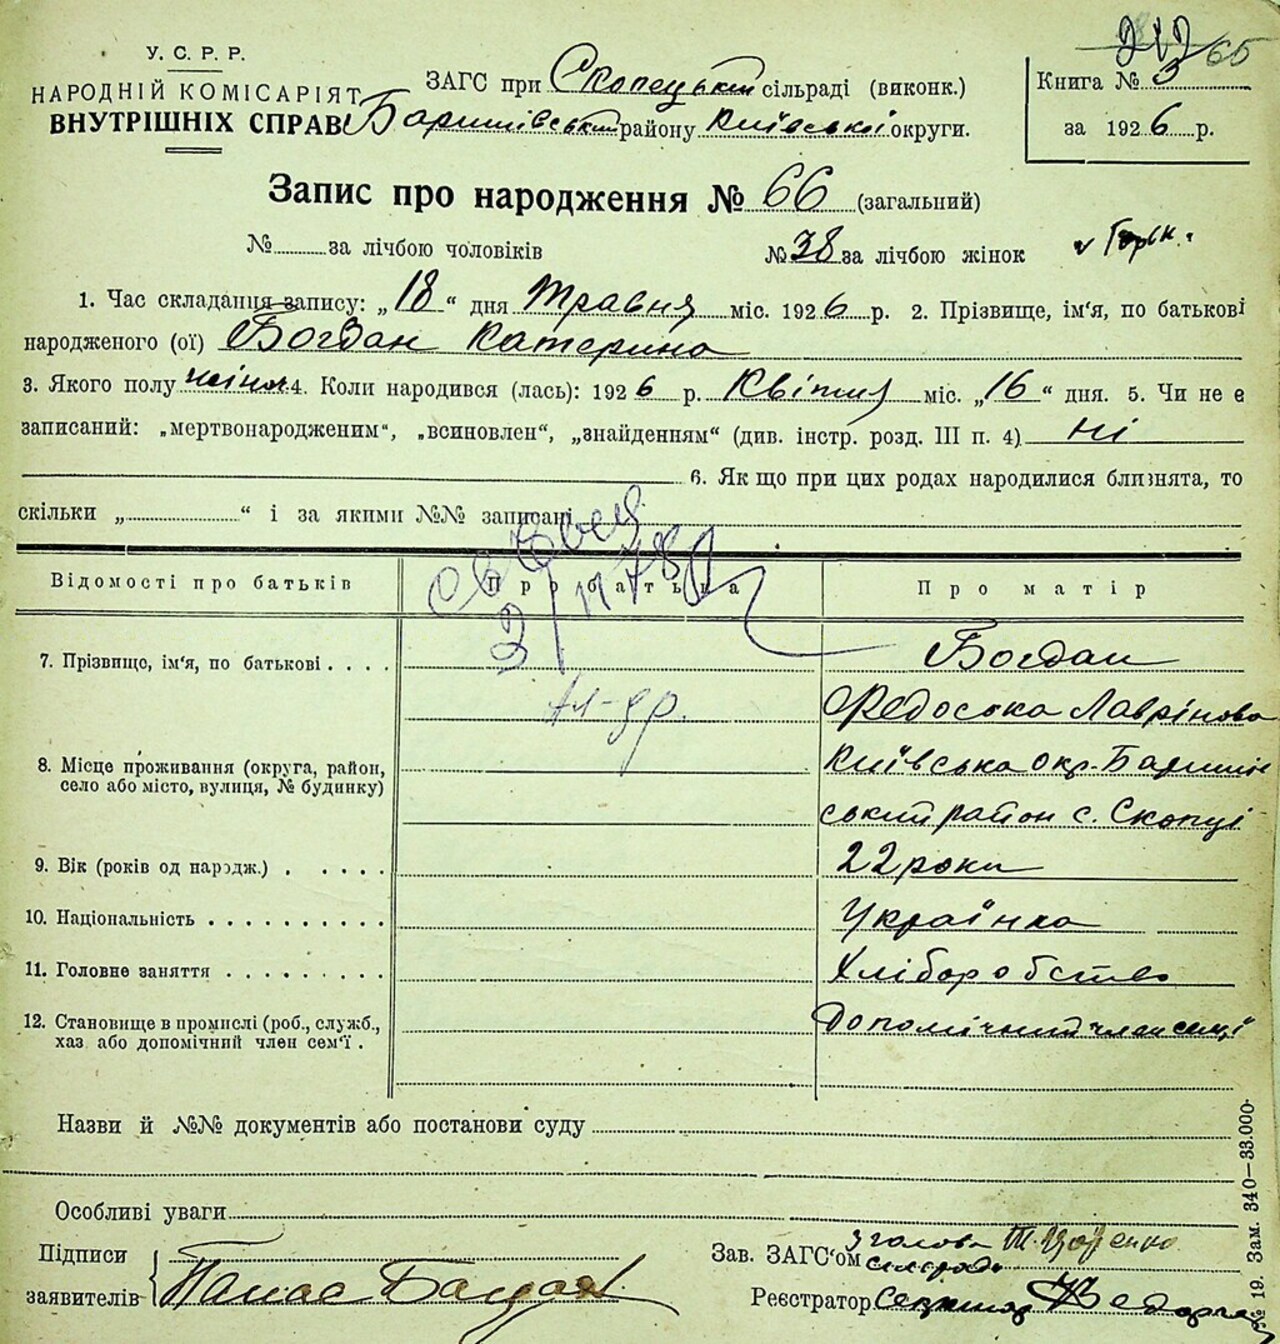 У. С. Р. Р.
НАРОДНІЙ КОМІСАРІЯТ
ВНУТРІШНІХ СПРАВ
ЗАГС при Скопецькій сільраді (виконк.)
Баришівський району Київської округи.
212 65
Книга № 3
за 1926 р.
Запис про народження № 66 (загальний)
№ за лічбою чоловіків № 38 за лічбою жінок
1. Час складання запису: „18“ дня Травня міс. 1926 р. 2. Прізвище, ім'я, по батькові
народженого (ої) Богдан Катерина
3. Якого полу жіноч. 4. Коли народився (лась): 1926 р. Квітня міс. „16“ дня. 5. Чи не є
записаний: „мертвонародженим“, „всиновлен“, „знайденням“ (див. інстр. розд. III п. 4) ні
6. Як що при цих родах народилися близнята, то
скільки „ “ і за якими №№ записані
Відомості про батьків Про батька Про матір
7. Прізвище, ім'я, по батькові Богдан
Федоська Лаврінова
8. Місце проживання (округа, район,
село або місто, вулиця, № будинку)
Київська окр. Баришів
ський район с. Скопці
9. Вік (років од народж.) 22 роки
10. Національність Українка
11. Головне заняття Хліборобство
12. Становище в промислі (роб., служб.,
хаз або допомічний член сем'ї.
Допомічний член семї
Назви й №№ документів або постанови суду
Особливі уваги
Підписи
заявителів Панас Богдан
Зав. ЗАГС'ом голова
сільради
Реєстратор Секретар
№ 19. Зам. 340—33.000.